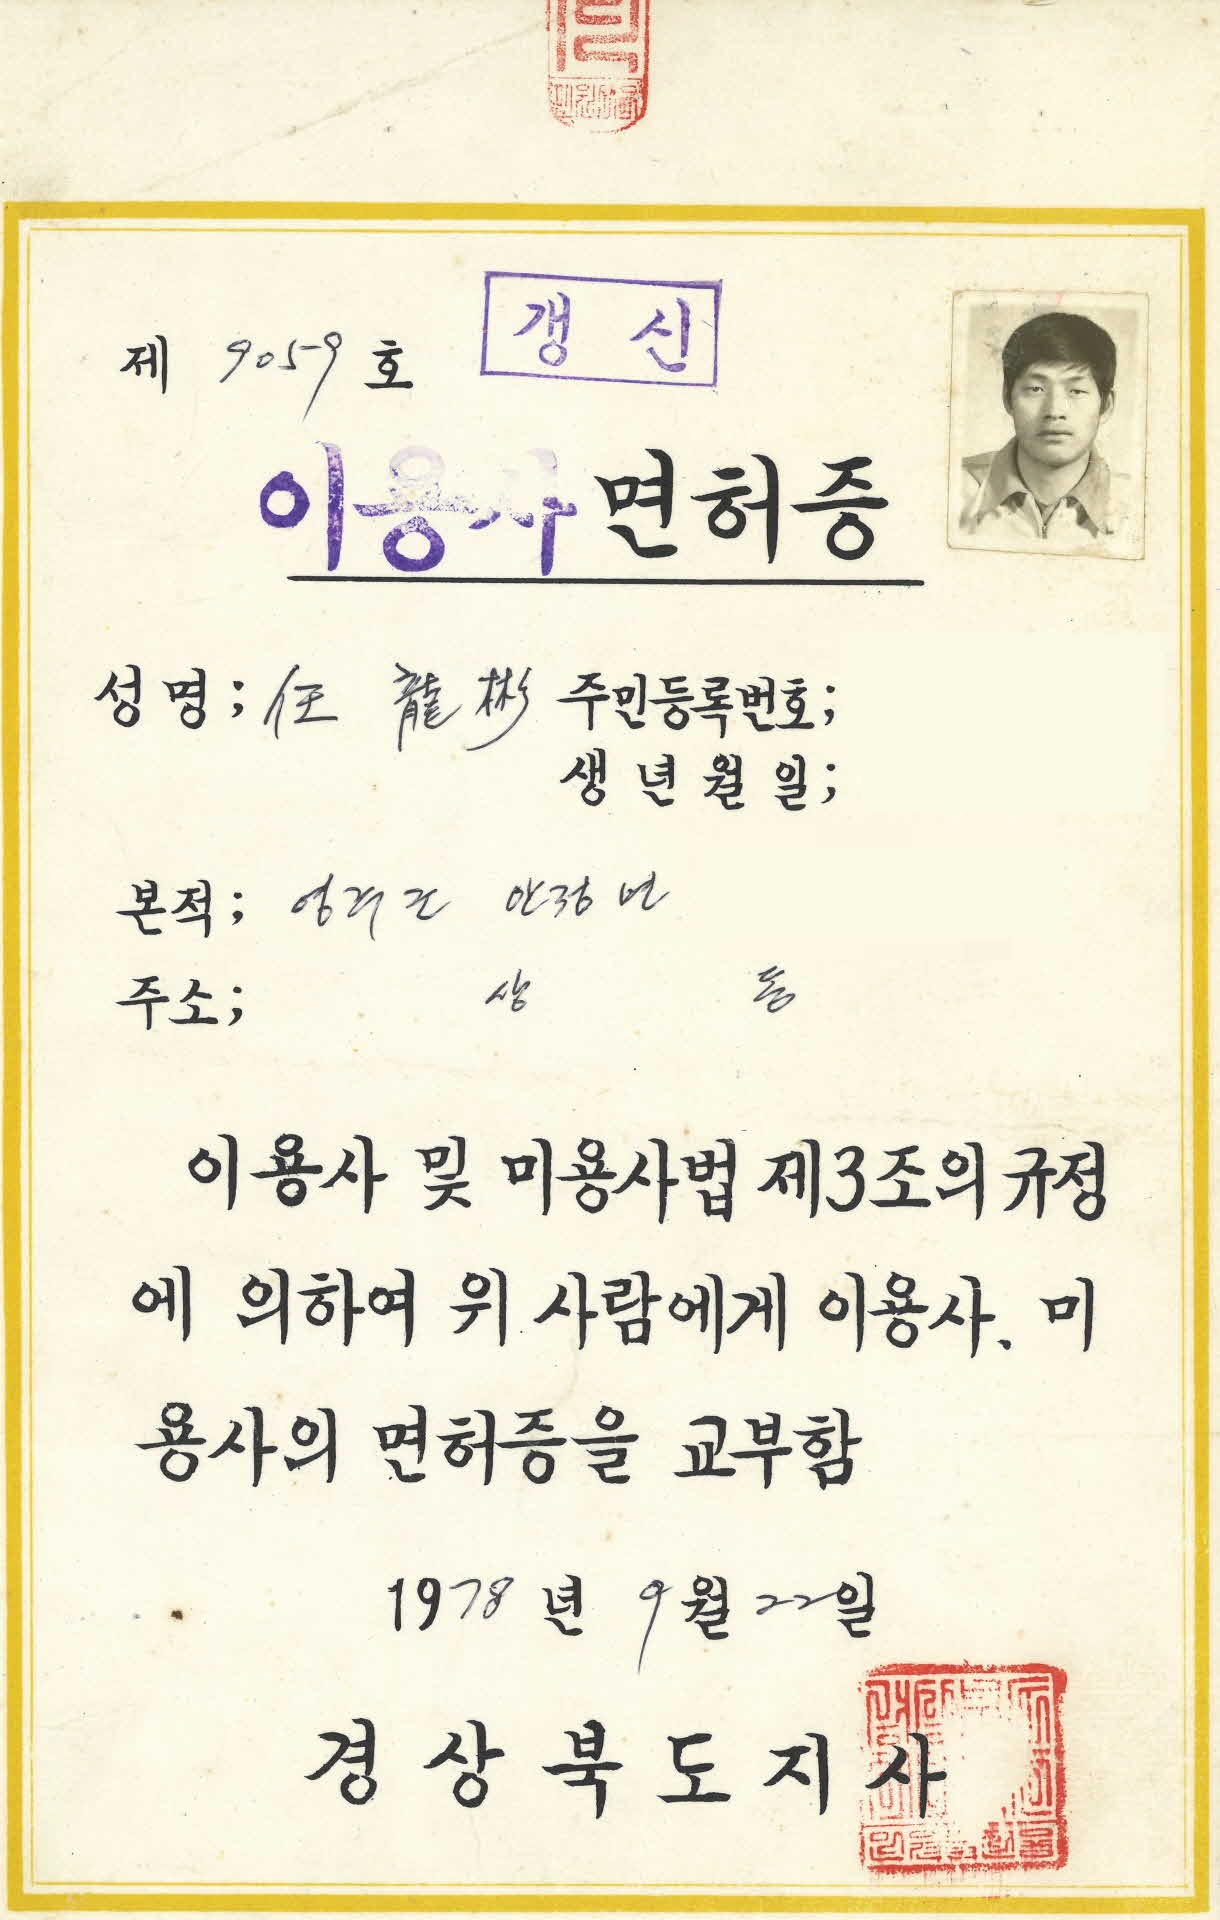 갱신
제 9059 호
이용사 면허증
성명; 任 龍彬 주민등록번호;
생년월일;
본적; 영주군 안정면
주소; 상 동
이용사 및 미용사법 제3조의 규정
에 의하여 위 사람에게 이용사. 미
용사의 면허증을 교부함
1978년 9월 22일
경상북도지사